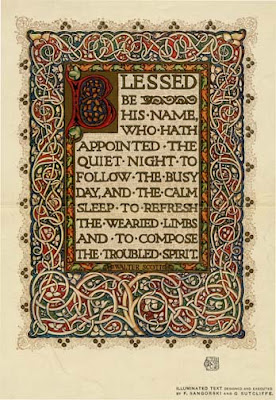 BLESSED
BE
HIS·NAME,
WHO·HATH
APPOINTED·THE
QUIET·NIGHT·TO
FOLLOW·THE·BUSY
DAY, AND·THE·CALM
SLEEP·TO·REFRESH
THE·WEARIED·LIMBS
AND·TO·COMPOSE
THE·TROUBLED·SPIRIT.
WALTER SCOTT
ILLUMINATED TEXT DESIGNED AND EXECUTED
BY F. SANGORSKI AND G. SUTCLIFFE.